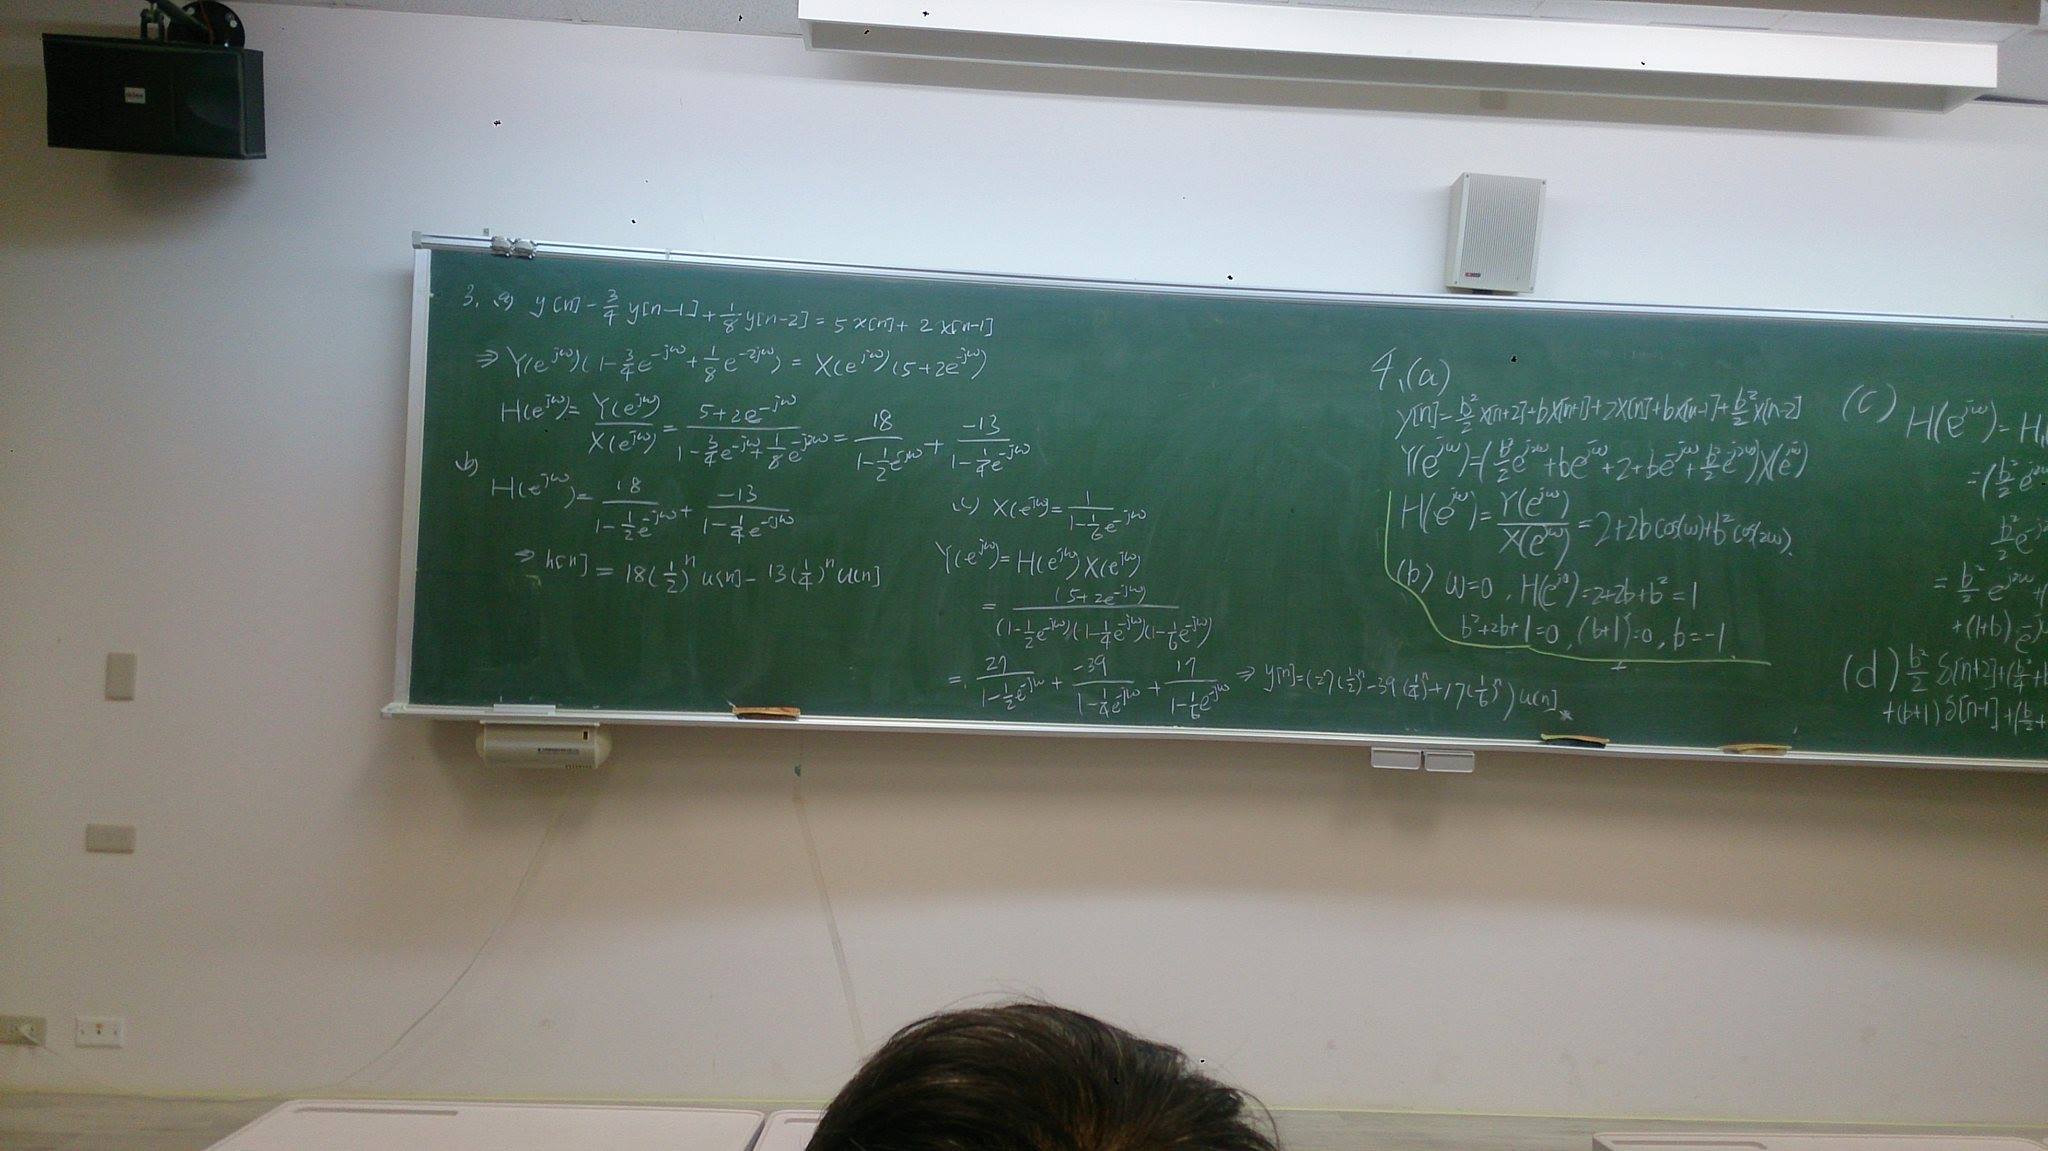 3. (a) y[n] - 3/4 y[n-1] + 1/8 y[n-2] = 5x[n] + 2x[n-1]
⇒ Y(e^jω)(1 - 3/4 e^-jω + 1/8 e^-2jω) = X(e^jω)(5+2e^-jω)
H(e^jω) = Y(e^jω)/X(e^jω) = (5+2e^-jω)/(1 - 3/4 e^-jω + 1/8 e^-j2ω) = 18/(1 - 1/2 e^-jω) + -13/(1 - 1/4 e^-jω)
(b)
H(e^jω) = 18/(1 - 1/2 e^-jω) + -13/(1 - 1/4 e^-jω)
⇒ h[n] = 18(1/2)^n u[n] - 13(1/4)^n u[n]
(c) X(e^jω) = 1/(1 - 1/6 e^-jω)
Y(e^jω) = H(e^jω) X(e^jω)
= (5+2e^-jω)/((1 - 1/2 e^-jω)(1 - 1/4 e^-jω)(1 - 1/6 e^-jω))
= 27/(1 - 1/2 e^-jω) + -39/(1 - 1/4 e^-jω) + 17/(1 - 1/6 e^-jω) ⇒ y[n] = (27(1/2)^n - 39(1/4)^n + 17(1/6)^n) u[n]
4. (a)
y[n] = b²/2 x[n+2] + bx[n+1] + 2x[n] + bx[n-1] + b²/2 x[n-2]
Y(e^jω) = (b²/2 e^j2ω + be^jω + 2 + be^-jω + b²/2 e^-j2ω) X(e^jω)
H(e^jω) = Y(e^jω)/X(e^jω) = 2+2b cos(ω)+b² cos(2ω).
(b) ω=0, H(e^j0) = 2+2b+b² = 1
b²+2b+1=0, (b+1)²=0, b=-1
(c) H(e^jω) = H
= (b²/2 e^j2ω
b²/2 e^-j2
= b²/2 e^j2ω +
+(1+b) e^-j
(d) b²/2 δ[n+2] + (b²/4 + b
+(b+1) δ[n-1] + (b/2 +